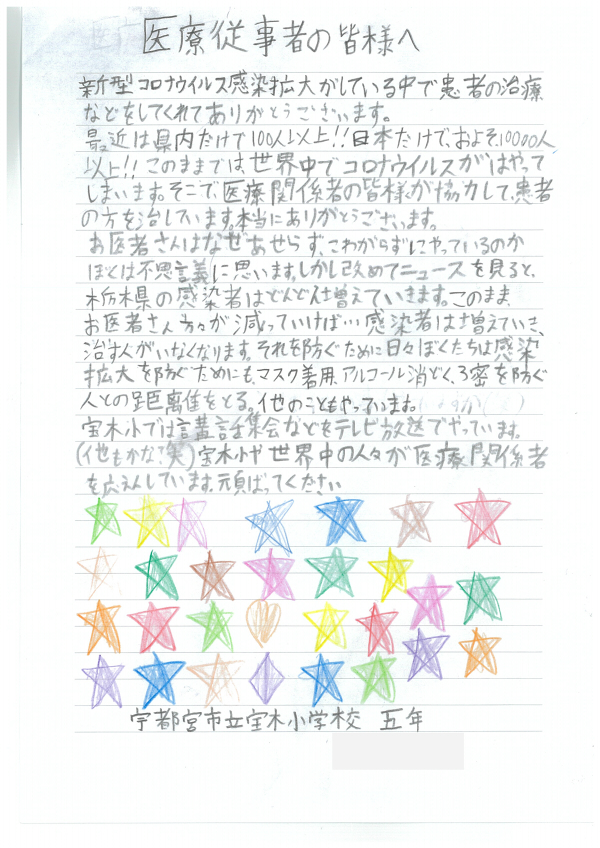 医療従事者の皆様へ
新型コロナウイルス感染拡大がしている中で患者の治療
などをしてくれてありがとうございます。
最近は県内だけで100人以上!!日本だけで、およそ10000人
以上!!このままでは、世界中でコロナウイルスがはやって
しまいます。そこで医療関係者の皆様が協力して、患者
の方を治しています。本当にありがとうございます。
お医者さんはなぜあせらず、こわがらずにやっているのか
ぼくは不思議に思います。しかし改めてニュースを見ると、
栃木県の感染者はどんどん増えていきます。このまま、
お医者さん方々が減っていけば…感染者は増えていき、
治す人がいなくなります。それを防ぐために日々ぼくたちは感染
拡大を防ぐためにも、マスク着用、アルコール消どく、3密を防ぐ
人との距離をとる。他のこともやっています。
宝木小では言葉話集会などをテレビ放送でやっています。
(他もかな?笑)宝木小や世界中の人々が医療関係者
を応えんしています。頑ばってください
宇都宮市立宝木小学校 五年